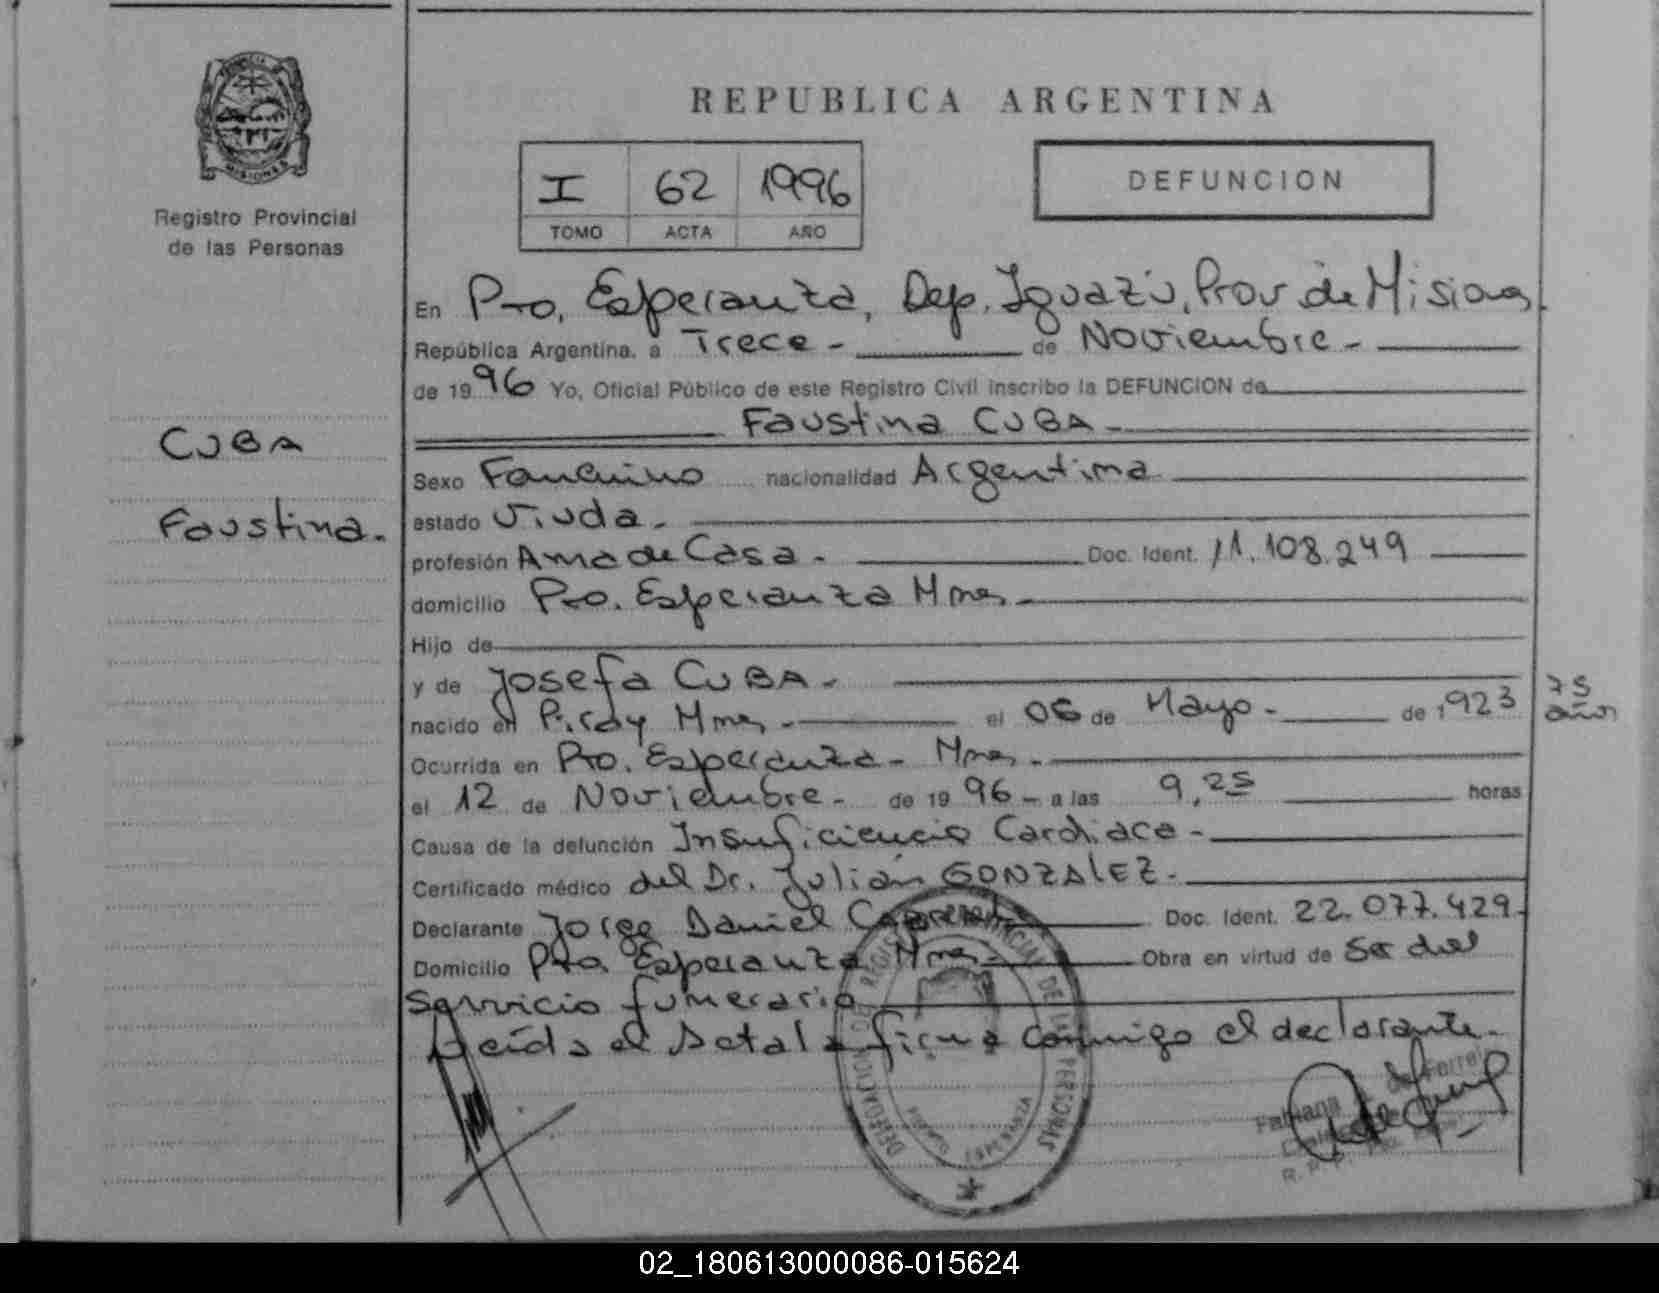 PROVINCIA DE
MISIONES
Registro Provincial
de las Personas
CUBA
Faustina.
REPUBLICA ARGENTINA
I 62 1996
TOMO ACTA AÑO
DEFUNCION
En Pto. Esperanza, Dep. Iguazú, Prov. de Misiones
República Argentina, a Trece - de Noviembre -
de 1996 Yo, Oficial Público de este Registro Civil inscribo la DEFUNCION de
Faustina CUBA -
Sexo Femenino nacionalidad Argentina
estado Viuda -
profesión Ama de Casa - Doc. Ident. 11.108.249
domicilio Pto. Esperanza Mnes -
Hijo de
y de Josefa CUBA -
nacido en Piray Mnes - el 06 de Mayo - de 1923
75
años
Ocurrida en Pto. Esperanza - Mnes -
el 12 de Noviembre - de 1996 - a las 9,25 horas
Causa de la defunción Insuficiencia Cardiaca -
Certificado médico del Dr. Julián GONZALEZ -
Declarante Jorge Daniel Doc. Ident. 22.077.429
Domicilio Pto. Esperanza Mnes - Obra en virtud de Ser del
Servicio funerario
Leída el Acta la firma conmigo el declarante -
DELEGACION DE REGISTRO PROVINCIAL DE LAS PERSONAS
PUERTO ESPERANZA
Fabiana de Ferrei
02_180613000086-015624